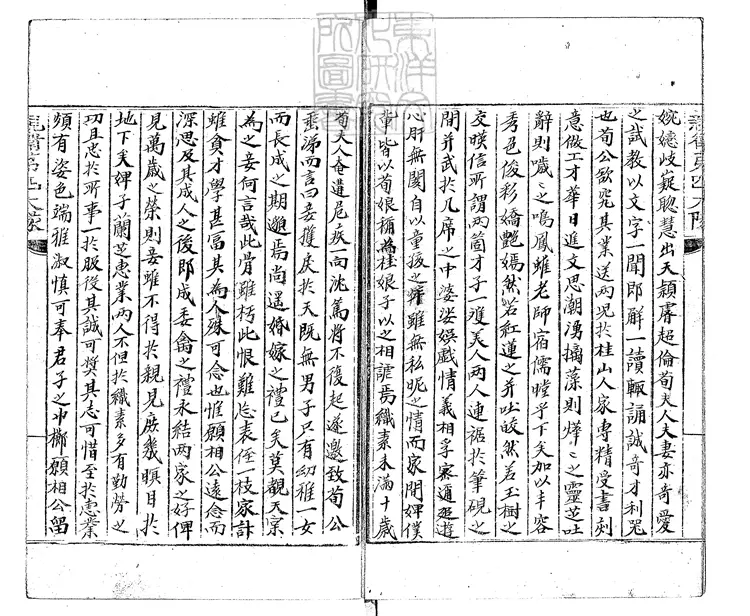 婉嬺歧嶷聰慧出天穎膚超倫荀夫人夫妻亦奇愛
之試教以文字一聞即觧一讀輒誦誠奇才利器
也荀公欲究其業送兩児扵桂山人家專精受書刻
意做工才華日進文思潮湧摛藻則燁〻之靈芝吐
辭則噦〻之鳴鳳雖老師宿儒瞠乎下矣加以丰容
秀色俊彩嬌艶嫣然若紅蓮之并吐皎然若玉樹之
交暎信所謂兩箇才子一雙美人兩人連裾扵筆硯之
間并武扵几席之中婆娑娛戲情義相孚密邇遊
心肝無閡自以童孩之雖無私昵之情而家間婢僕
輩皆以荀娘稱為桂娘子以之相謔焉纖素未滿十歲
荀夫人奄遘危疾一向沈篤將不復起遂邀致荀公
垂涕而言曰妾獲戾扵天既無男子只有幼稚一女
而長成之期邈焉尚遥婚嫁之禮已矣莫覩天宗
為之妾何言哉此骨雖朽此恨難忘袁侄一枝家計
雖貧才學甚富其為人殊可念也惟願相公遠念而
深思及其成人之後即成委禽之禮永結兩家之好俾
見萬歲之榮則妾雖不得扵親見庶幾瞑目扵
地下矣婢子蘭芝惠業兩人不但扵織素多有勤勞之
功且忠扵所事一扵服役其誠可奬其志可惜至扵惠業
頗有姿色端雅淑慎可奉君子之巾櫛願相公留